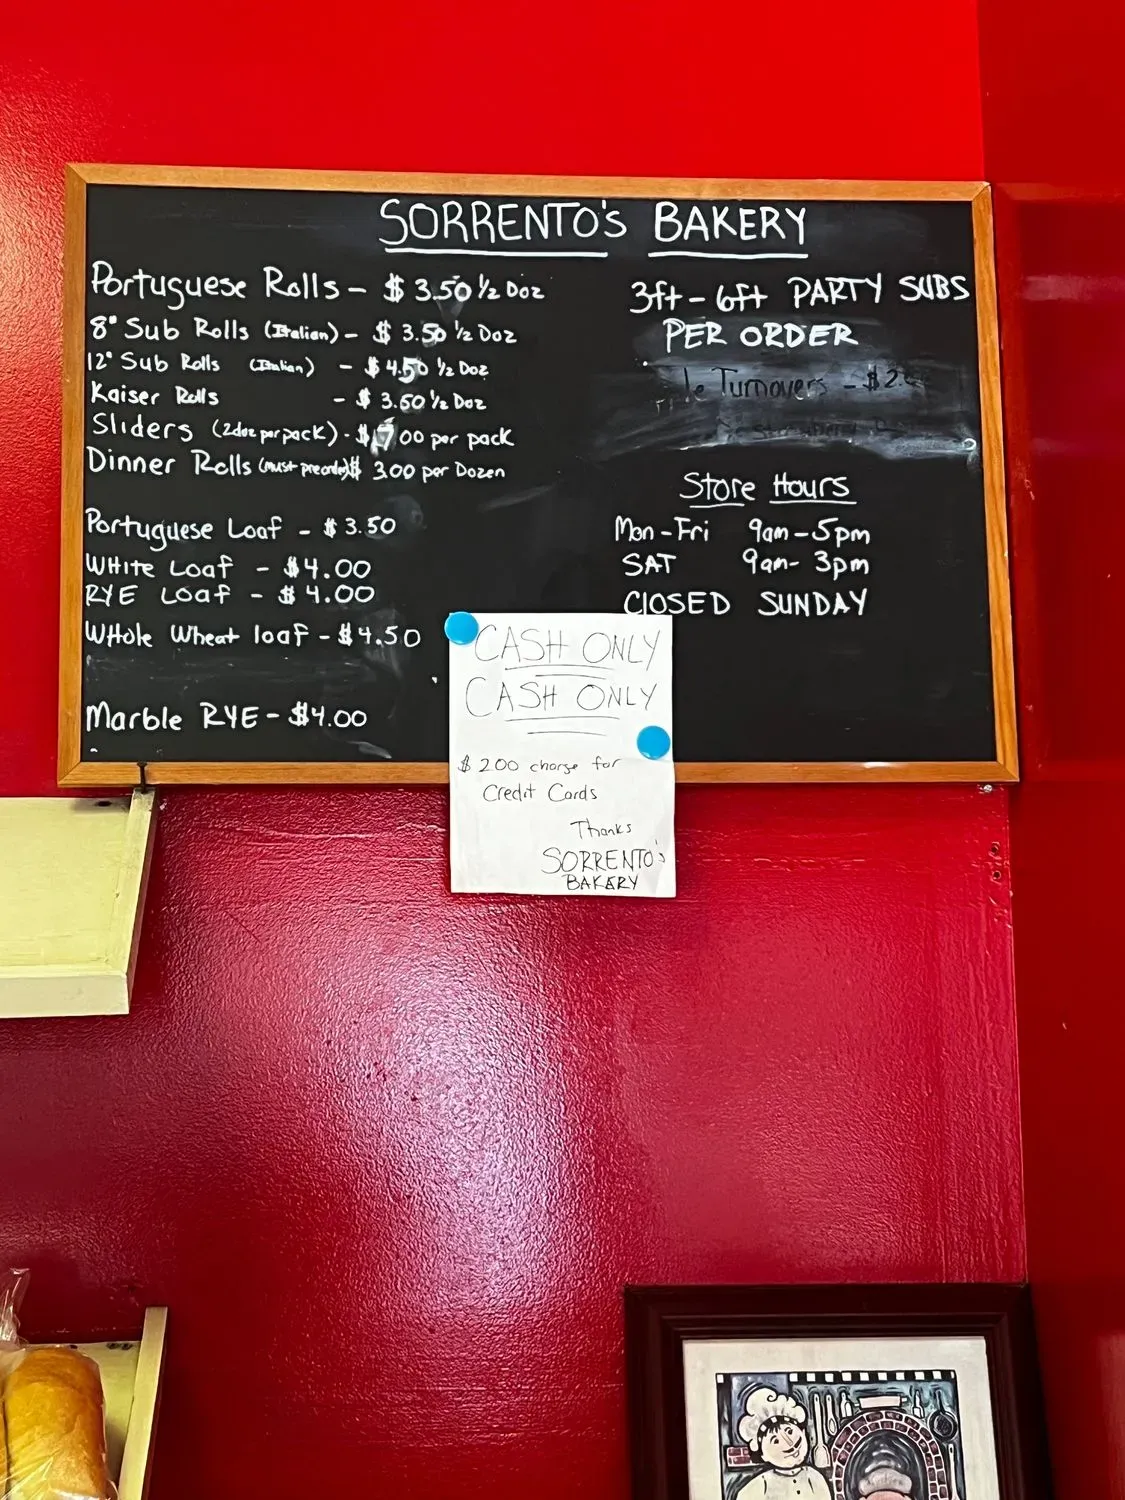 SORRENTO'S BAKERY
Portuguese Rolls - $ 3.50 1/2 Doz
8" Sub Rolls (Italian) - $ 3.50 1/2 Doz
12" Sub Rolls (Italian) - $ 4.50 1/2 Doz
Kaiser Rolls - $ 3.50 1/2 Doz
Sliders (2doz per pack) - $ 7.00 per pack
Dinner Rolls (must preorder) $ 3.00 per Dozen
Portuguese Loaf - $ 3.50
White Loaf - $4.00
RYE Loaf - $4.00
Whole Wheat loaf - $4.50
Marble RYE - $4.00
3ft - 6ft PARTY SUBS
PER ORDER
Turnovers - $2.
Store Hours
Mon - Fri 9am - 5pm
SAT 9am - 3pm
CLOSED SUNDAY
CASH ONLY
CASH ONLY
$ 2.00 charge for
Credit Cards
Thanks
SORRENTO's
BAKERY